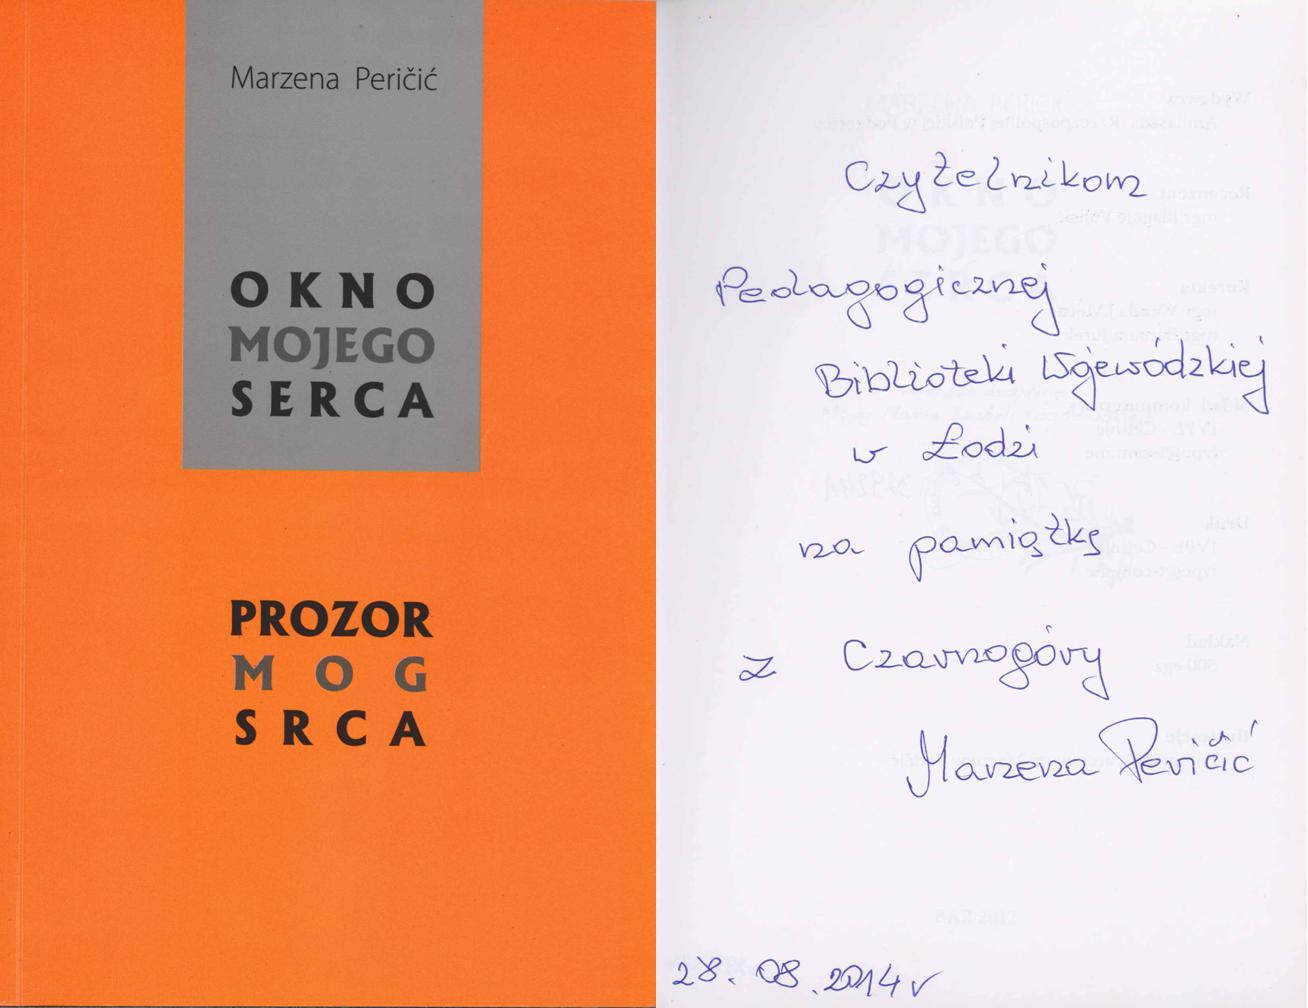 Marzena Peričić
OKNO
MOJEGO
SERCA
PROZOR
MOG
SRCA
Czytelnikom
Pedagogicznej
Biblioteki Wojewódzkiej
w Łodzi
na pamiątkę
z Czarnogóry
Marzena Peričić
28.08.2014 r